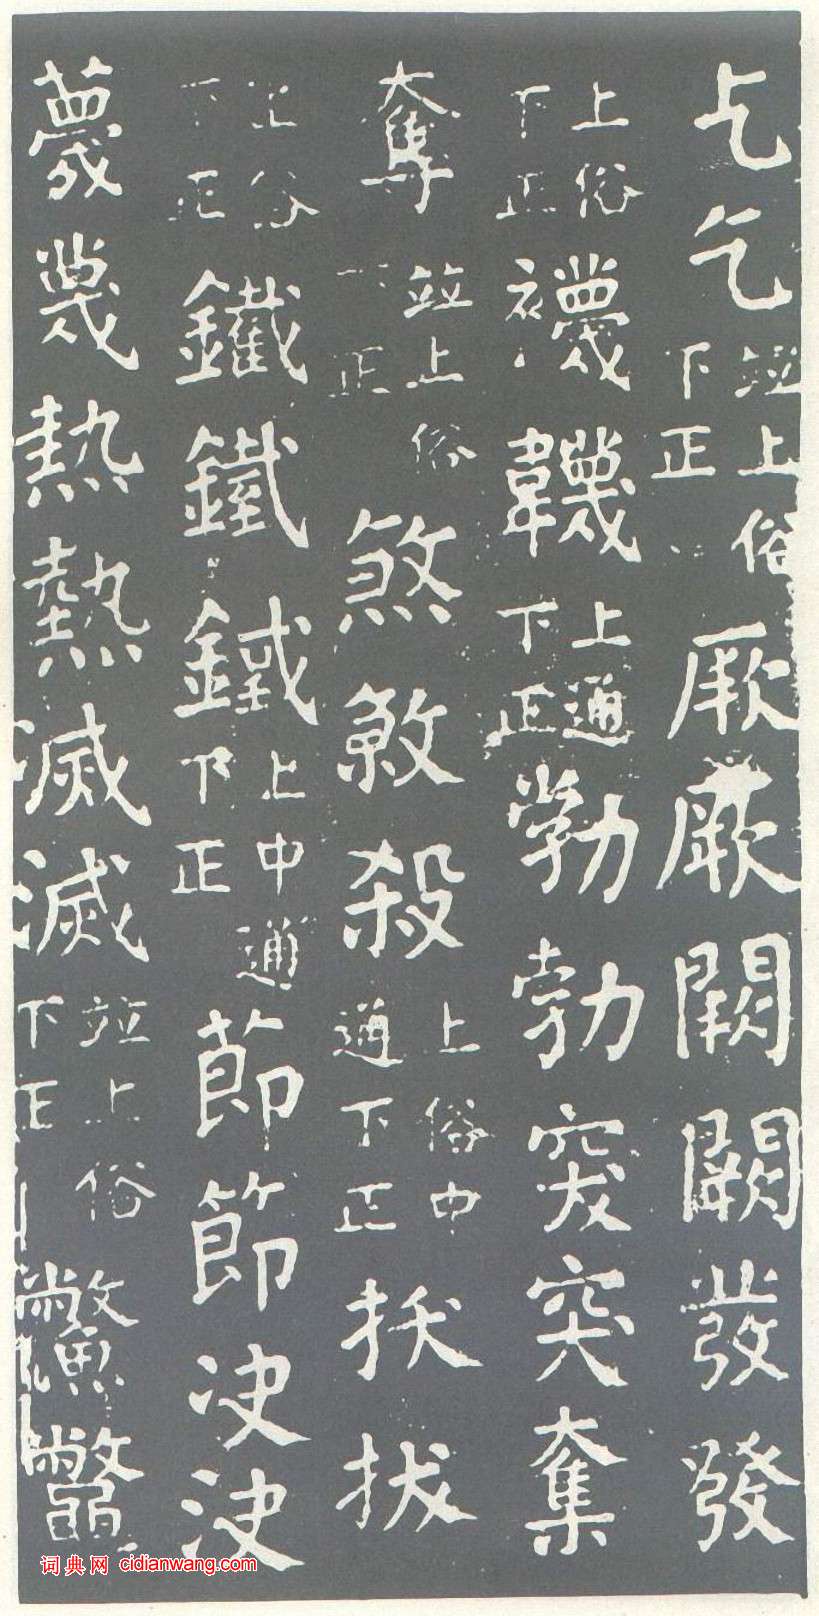 乞乞並上俗下正厥厥闕闕發發
上俗下正襪韈上通下正勃勃突突奪
奪並上俗下正煞煞殺上俗中通下正拔拔
上俗下正鐵鐵鐵上中通下正節節決決
蔑蔑熱熱滅滅並上俗下正鱉鼈
词典网 cidianwang.com